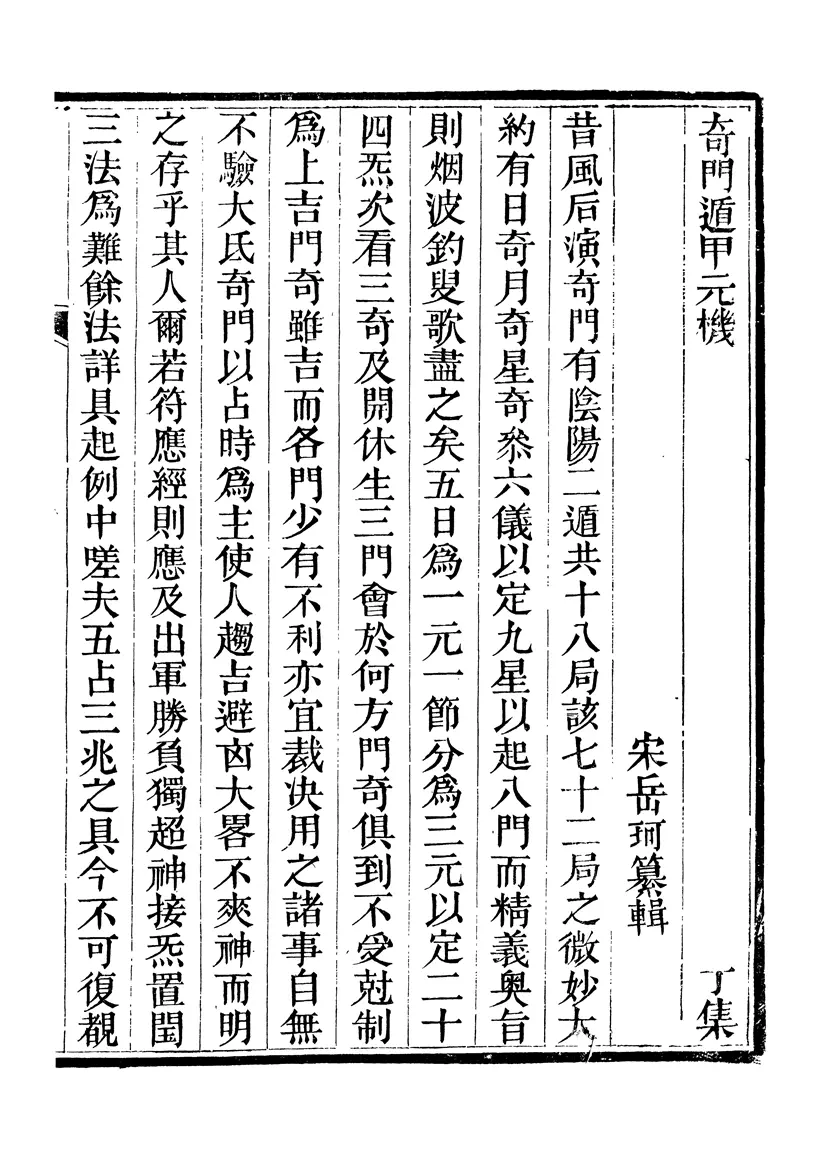 奇門遁甲元機　丁集
宋岳珂纂輯
昔風后演奇門有陰陽二遁共十八局該七十二局之微妙大
約有日奇月奇星奇叅六儀以定九星以起八門而精義奥旨
則烟波釣叟歌盡之矣五日爲一元一節分爲三元以定二十
四炁次看三奇及開休生三門會於何方門奇俱到不受尅制
爲上吉門奇雖吉而各門少有不利亦宜裁决用之諸事自無
不驗大氐奇門以占時爲主使人趨吉避凶大畧不爽神而明
之存乎其人爾若符應經則應及出軍勝負獨超神接炁置閏
三法爲難餘法詳具起例中嗟夫五占三兆之具今不可復覩